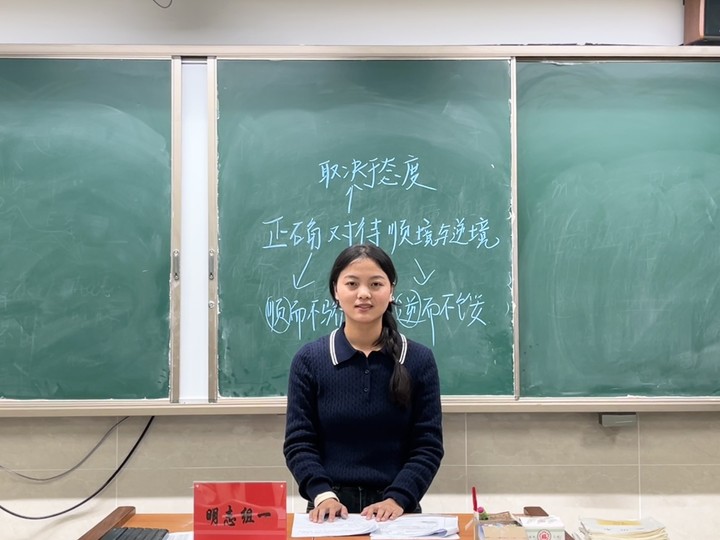 取决于态度
正确对待顺境与逆境
顺而不
逆而不馁
明志组一